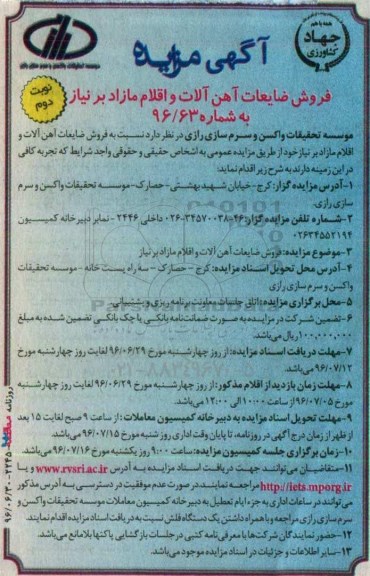 همه با هم
جهاد
کشاورزی
آگهی مزایده
موسسه تحقیقات واکسن و سرم سازی رازی
نوبت
دوم
فروش ضایعات آهن آلات و اقلام مازاد بر نیاز
به شماره ۹۶/۶۳
موسسه تحقیقات واکسن و سرم سازی رازی در نظر دارد نسبت به فروش ضایعات آهن آلات و
اقلام مازاد بر نیاز خود از طریق مزایده عمومی به اشخاص حقیقی و حقوقی واجد شرایط که تجربه کافی
در این زمینه دارند به شرح زیر اقدام نماید:
۱-آدرس مزایده گزار: کرج - خیابان شهید بهشتی - حصارک - موسسه تحقیقات واکسن و سرم
سازی رازی.
۲-شماره تلفن مزایده گزار: ۰۲۶-۳۴۵۷۰۰۳۸-۴۶ داخلی ۲۴۴۶ - نمابر دبیرخانه کمیسیون
۰۲۶۳۴۵۵۲۱۹۴
۳-موضوع مزایده: فروش ضایعات آهن آلات و اقلام مازاد بر نیاز
۴-آدرس محل تحویل اسناد مزایده: کرج - حصارک - سه راه پست خانه - موسسه تحقیقات
واکسن و سرم سازی رازی
۵-محل برگزاری مزایده: اتاق جلسات معاونت برنامه ریزی و پشتیبانی.
۶-تضمین شرکت در مزایده به صورت ضمانت‌نامه بانکی یا چک بانکی تضمین شده به مبلغ
۱۰۰,۰۰۰,۰۰۰ ریال می‌باشد.
۷-مهلت دریافت اسناد مزایده: از روز چهارشنبه مورخ ۹۶/۰۶/۲۹ لغایت روز چهارشنبه مورخ
۹۶/۰۷/۱۲ می‌باشد.
۸-مهلت زمان بازدید از اقلام مذکور: از روز چهارشنبه مورخ ۹۶/۰۶/۲۹ لغایت روز چهارشنبه
مورخ ۹۶/۰۷/۰۵ از ساعت ۱۰:۰۰ الی ۱۲:۰۰ می‌باشد.
۹-مهلت تحویل اسناد مزایده به دبیرخانه کمیسیون معاملات: از ساعت ۹ صبح لغایت ۱۵ بعد
از ظهر از زمان درج آگهی در روزنامه، تا پایان وقت اداری روز شنبه مورخ ۹۶/۰۷/۱۵ می‌باشد.
۱۰-زمان برگزاری جلسه کمیسیون مزایده: ساعت ۹:۰۰ روز یکشنبه مورخ ۹۶/۰۷/۱۶ می‌باشد.
۱۱-متقاضیان می‌توانند جهت دریافت اسناد مزایده به آدرس www.rvsri.ac.ir و یا
http://iets.mporg.ir مراجعه نمایند، در صورت عدم موفقیت در دسترسی به آدرس مذکور
می‌توانند در ساعات اداری به جزء ایام تعطیل به دبیرخانه کمیسیون معاملات موسسه تحقیقات واکسن و
سرم سازی رازی مراجعه و با همراه داشتن یک دستگاه فلش نسبت به دریافت اسناد مزایده اقدام نمایند.
۱۲-حضور نمایندگان شرکت‌ها با معرفی‌نامه کتبی در جلسات بازگشایی پاکتها بلامانع می‌باشد.
۱۳-سایر اطلاعات و جزئیات در اسناد مزایده موجود می‌باشد.
روزنامه
۲۲۴۵ - ۹۶/۰۶/۳۰